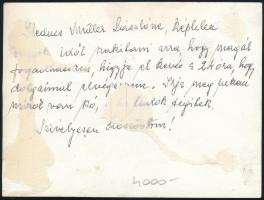 Kedves Müller Lászlóné, képtelen
időt szakítani arra, hogy magát
fogadhassam, higyje el kevés a 24 óra, hogy
dolgaimat elvégezzem. Írja meg nekem
miről van szó, ha tudok segítek.
Szívélyesen üdvözlöm!
4000-